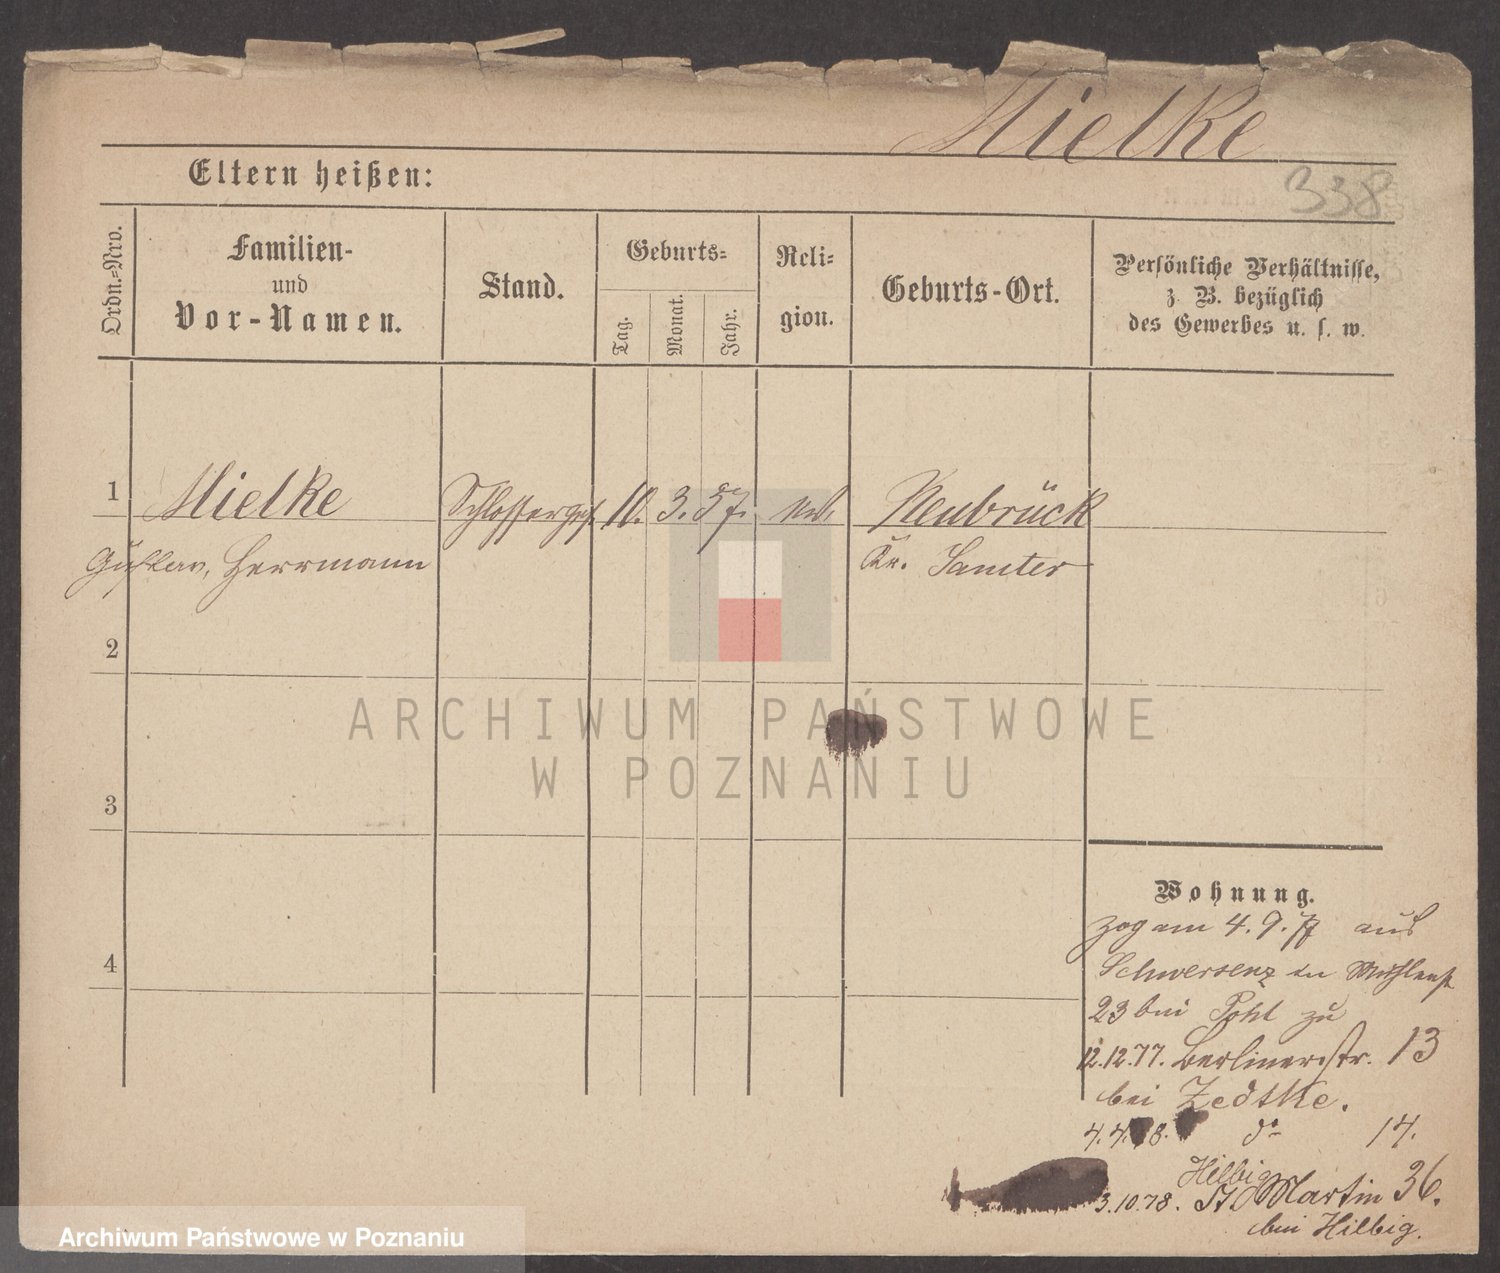 Mielke
338
Eltern heißen:
Ordn.=Nro.
Familien-
und
Vor-Namen.
Stand.
Geburts=
Tag.
Monat.
Jahr.
Reli=
gion.
Geburts-Ort.
Persönliche Verhältnisse,
z. B. bezüglich
des Gewerbes u. s. w.
1 Mielke Schlosserges. 10. 3. 57. Neubrück
Gustav, Herrmann Kr. Samter
2
3
4
Wohnung.
zog am 4. 9. 77 aus
Schwersenz in Mühlenst
23 bei Pohl zu
12.12.77. Berlinerstr. 13
bei Zedtke.
4. 4. 78. do 14.
Hilbig
3.10.78. St Martin 36.
bei Hilbig.
ARCHIWUM PAŃSTWOWE
W POZNANIU
Archiwum Państwowe w Poznaniu